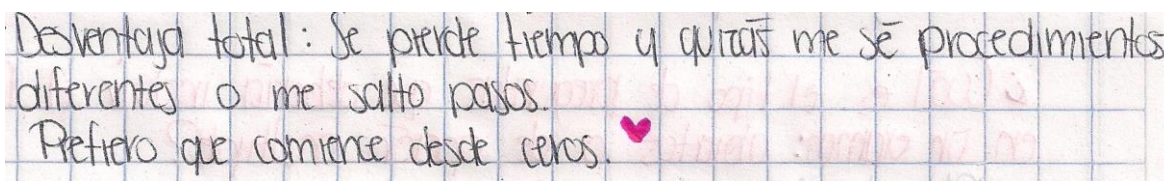 Desventaja total: Se pierde tiempo y quizás me sé procedimientos
diferentes o me salto pasos.
Prefiero que comience desde ceros.